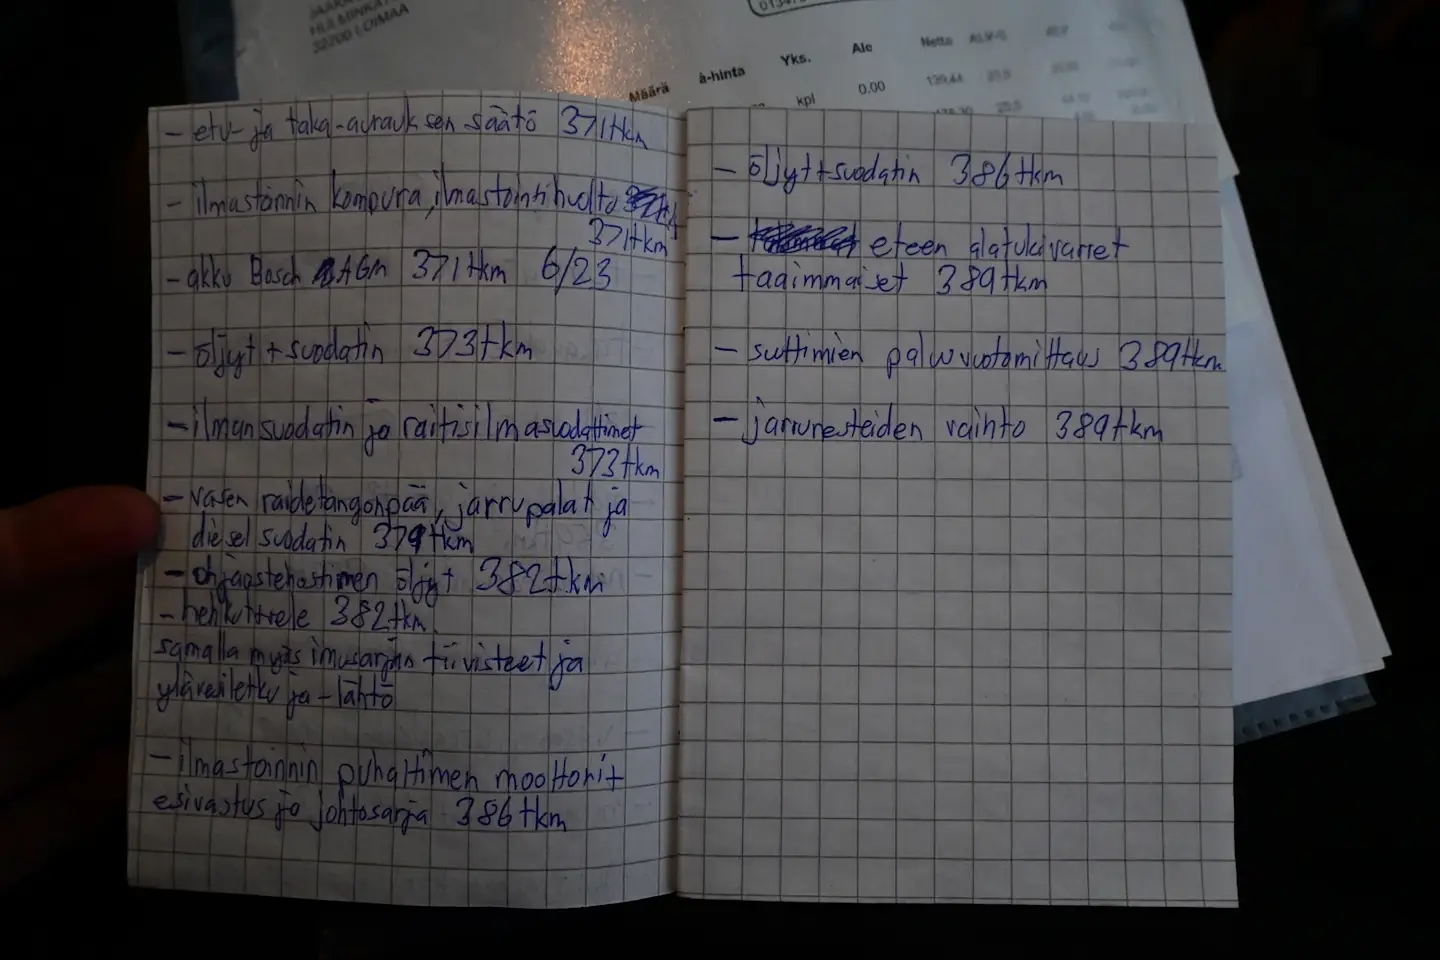 32200 LOIMAA
Määrä
á-hinta
Yks.
Ale
Netto
kpl
0.00
- etu- ja taka-aurauksen säätö 371tkm
- ilmastoinnin kompura, ilmastointihuolto
371tkm
- akku Bosch AGM 371tkm 6/23
- öljyt + suodatin 373tkm
- ilmansuodatin ja raitisilmasuodattimet
373tkm
- vasen raidetangonpää, jarrupalat ja
diesel suodatin 379tkm
- ohjaustehostimen öljyt 382tkm
- hehkut+rele 382tkm
samalla myös imusarjan tiivisteet ja
ylävesiletku ja -lähtö
- ilmastoinnin puhaltimen moottori+
esivastus ja johtosarja 386tkm
- öljyt+suodatin 386tkm
- eteen alatukivarret
taaimmaiset 389tkm
- suttimien paluuvuotomittaus 389tkm
- jarrunesteiden vaihto 389tkm